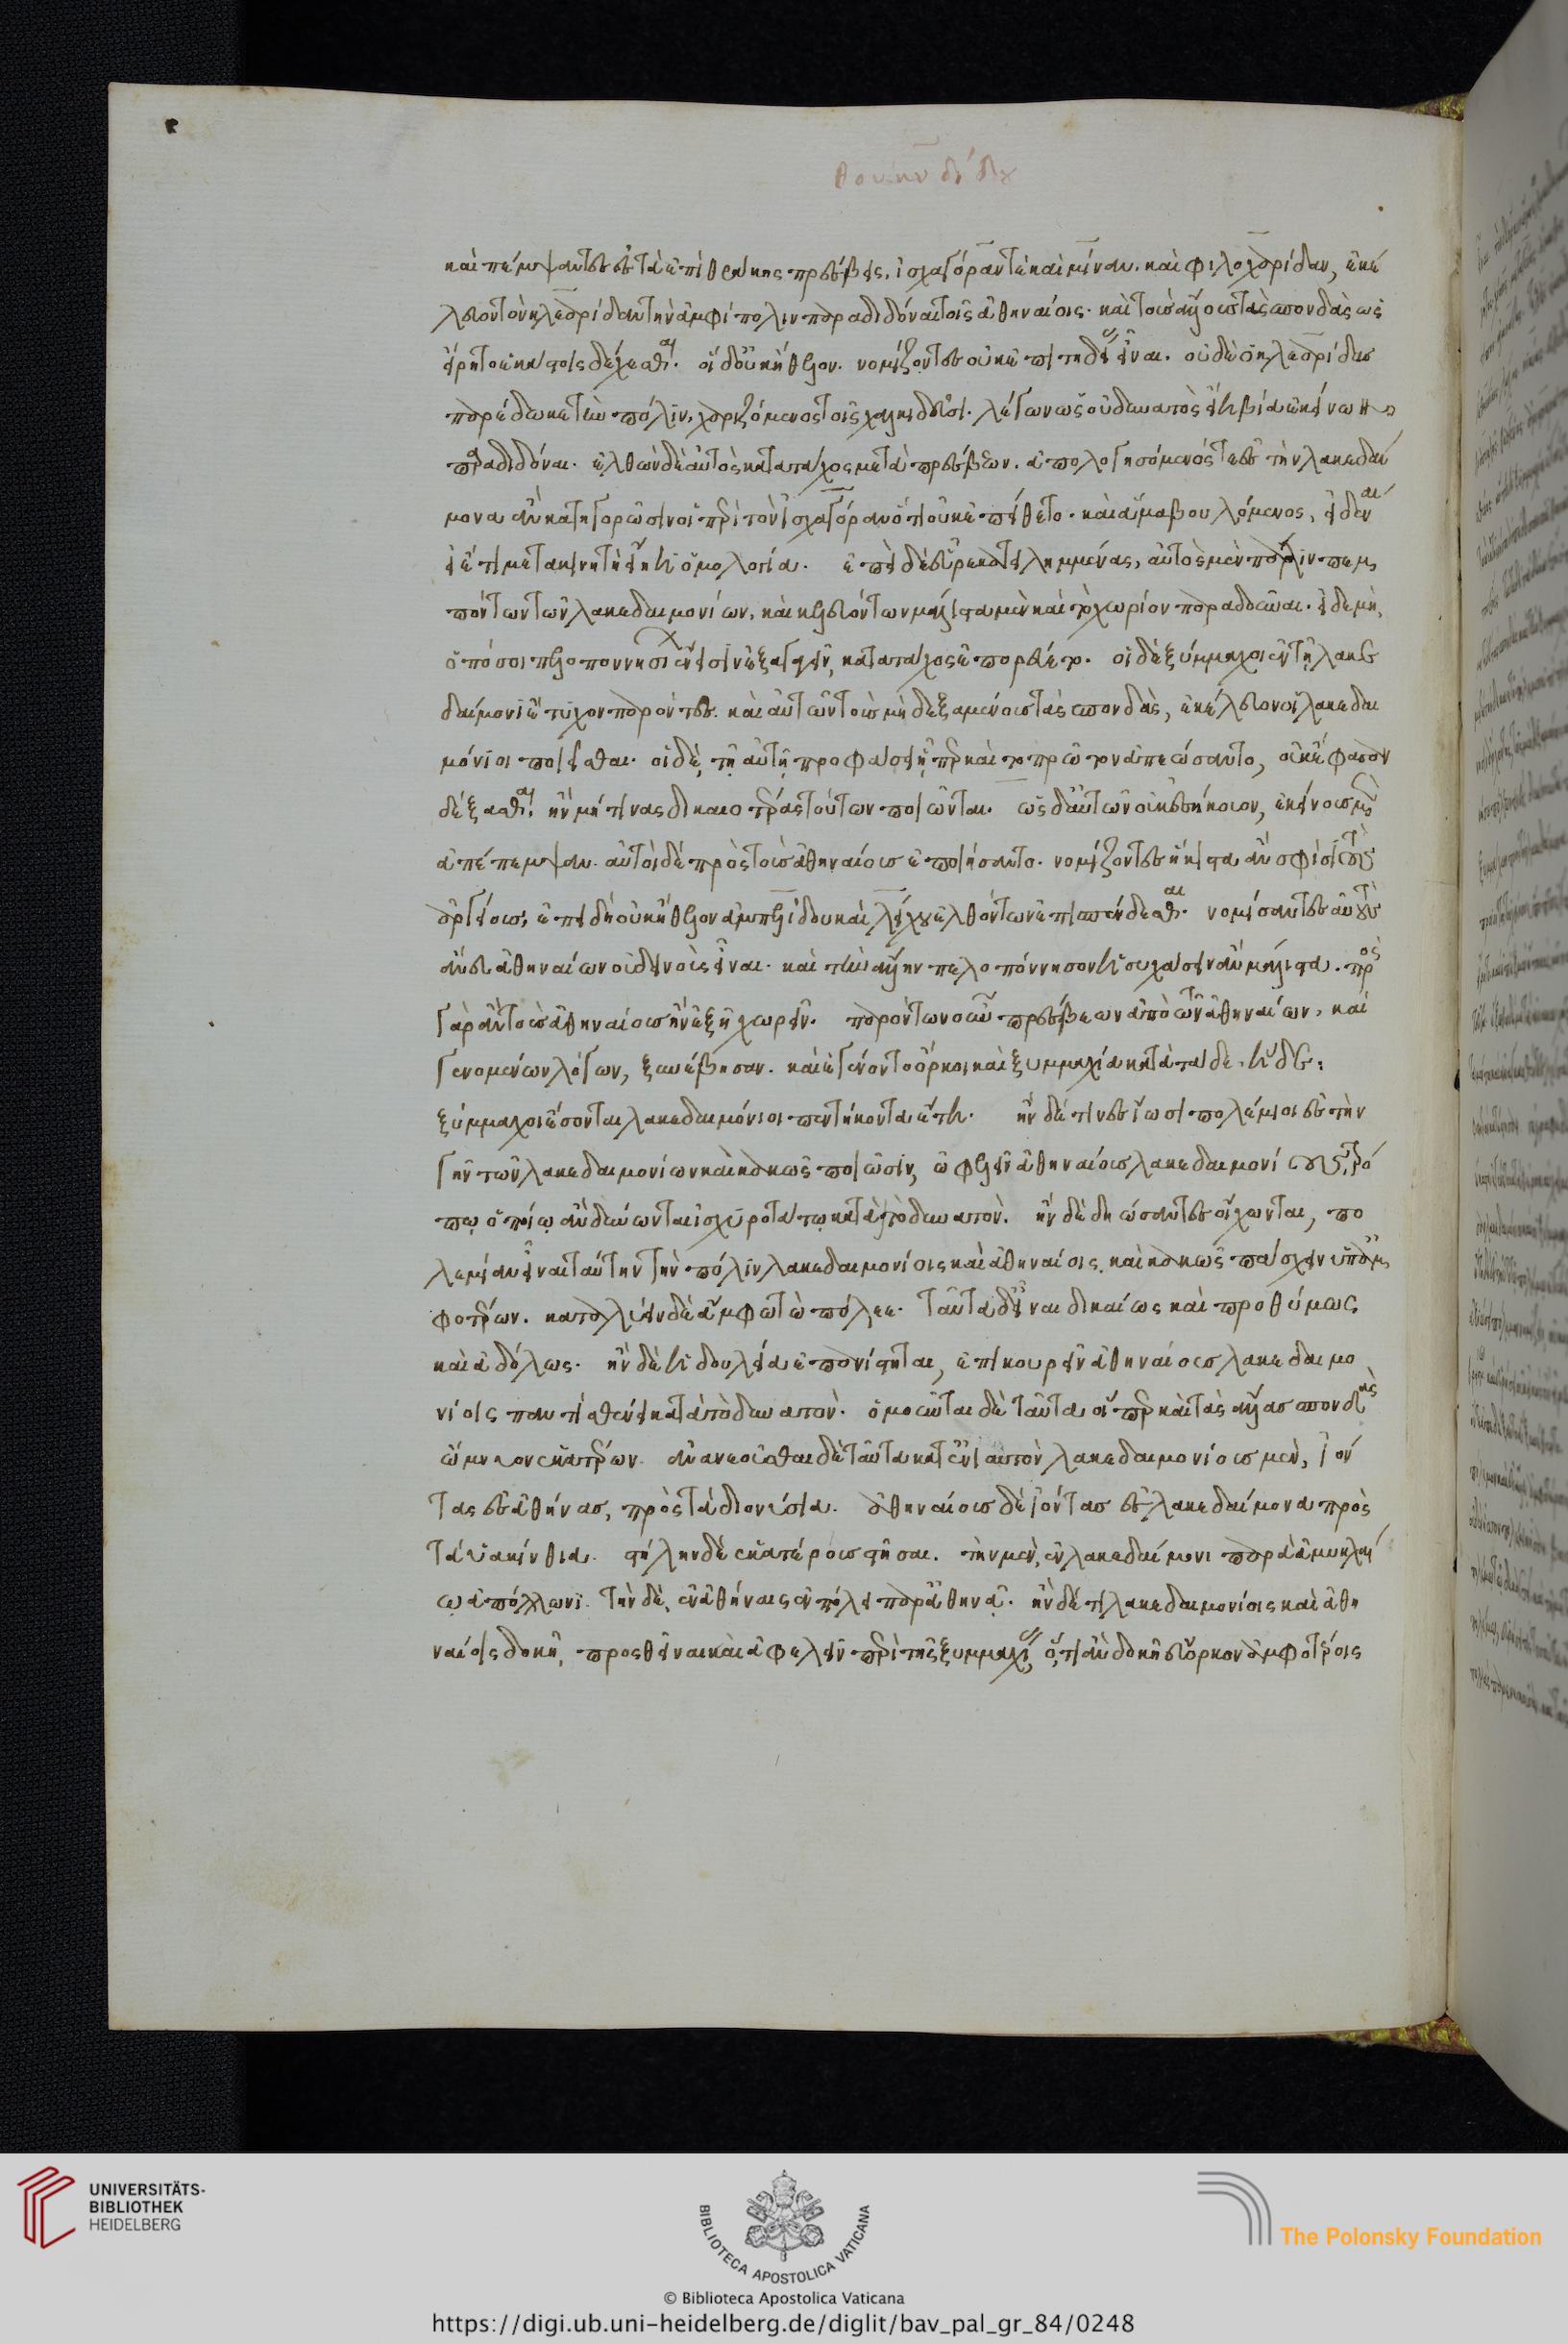 θουκυδίδου
καὶ πέμψαντες ἐς τὰ ἐπὶ θράκης πρέσβεις, ἰσχαγόραν τὲ καὶ μίναν. καὶ φιλοχαρίδαν, ἐκέ
λευον τὸν κλεαρίδαν τὴν ἀμφίπολιν παραδιδόναι τοῖς ἀθηναίοις. καὶ τοὺς ἄλλους τὰς σπονδὰς ὡς
εἴρητο ἑκάστοις δέχεσθαι. οἱ δ' οὐκ ἤθελον. νομίζοντες οὐκ ἐπιτηδείους εἶναι. οὐδὲ ὁ κλεαρίδας
παρέδωκε τὴν πόλιν, χαριζόμενος τοῖς χαλκιδεῦσι. λέγων ὡς οὐ δυνατὸς εἴη βία ἐκείνων
παραδιδόναι. ἐλθὼν δὲ αὐτὸς κατα τάχος μετὰ πρέσβεων. ἀπολογησόμενός τε ἐς τὴν λακεδαί
μονα ἂν κατηγορῶσιν οἱ περὶ τὸν ἰσχαγόραν ὅτι οὐκ ἐπείθετο. καὶ ἅμα βουλόμενος, εἰδέναι
εἰ ἔτι μετακινητὴ εἴη ἡ ὁμολογία. ἐπειδὲ εὗρε κατειλημμένας, αὐτὸς μὲν πάλιν πεμ
πόντων τῶν λακεδαιμονίων, καὶ κελευόντων μάλιστα μὲν καὶ τὸ χωρίον παραδοῦναι. εἰ δε μὴ,
ὁπόσοι πελοποννησίων ἔνεισιν ἐξαγαγεῖν, κατα τάχος ἐπορεύετο. οἱ δὲ ξύμμαχοι ἐν τῇ λακε
δαίμονι ἔτυχον παρόντες. καὶ αὐτῶν τοὺς μὴ δεξαμένους τὰς σπονδὰς, ἐκέλευον οἱ λακεδαι
μόνιοι ποιεῖσθαι. οἱ δὲ, τῇ αὐτῇ προφάσει ᾗπερ καὶ τὸ πρῶτον ἀπεώσαντο, οὐκ ἔφασαν
δέξασθαι ἢν μή τινας δικαιοτέρας τούτων ποιῶνται. ὡς δ' αὐτῶν οὐκ ἐσήκουον, ἐκείνους μὲν
ἀπέπεμψαν. αὐτοὶ δὲ πρὸς τοὺς ἀθηναίους ἐποιήσαντο. νομίζοντες ἥκιστα ἂν σφίσι τούς
ἀργείους, ἐπειδὴ οὐκ ἤθελον ἀμπελίδου καὶ λίχου ἐλθόντων ἐπισπένδεσθαι. νομίσαντες αὐτοὺς
ἄνευ ἀθηναίων οὐ δεινοὺς εἶναι. καὶ τὴν ἄλλην πελοπόννησον ἡσυχάσειν ἂν μάλιστα. πρὸς
γὰρ ἂν τοὺς ἀθηναίους ἢν ἐξῆ χωρεῖν. παρόντων οὖν πρέσβεων ἀπὸ τῶν ἀθηναίων, καὶ
γενομένων λόγων, ξυνέβησαν. καὶ ἐγένοντο ὅρκοι καὶ ξυμμαχία κατὰ τάδε. ἡ δε:
ξύμμαχοι ἔσονται λακεδαιμόνιοι πεντήκοντα ἔτη. ἢν δέ τινες ἴωσι πολέμιοι ἐς τὴν
γῆν τῶν λακεδαιμονίων καὶ κακῶς ποιῶσιν, ὠφελεῖν ἀθηναίους λακεδαιμονίους, τρό
πῳ ὁποίῳ ἂν δύνωνται ἰσχυροτάτῳ κατὰ τὸ δυνατὸν. ἢν δὲ δῃώσαντες οἴχωνται, πο
λεμίαν εἶναι ταύτην τὴν πόλιν λακεδαιμονίοις καὶ ἀθηναίοις, καὶ κακῶς πάσχειν ὑπὸ ἀμ
φοτέρων. καταλύειν δὲ ἅμφω τὼ πόλεε. ταῦτα δ' εἶναι δικαίως καὶ προθύμως
καὶ ἀδόλως. ἢν δὲ ἡ δουλεία ἐπανίστηται, ἐπικουρεῖν ἀθηναίους λακεδαιμο
νίοις παντὶ σθένει κατὰ τὸ δυνατὸν. ὀμοῦνται δὲ ταῦτα οἵπερ καὶ τὰς ἄλλας σπονδὰς
ὤμνυον ἑκατέρων. ἀνανεοῦσθαι δὲ ταῦτα κατ' ἐνιαυτὸν λακεδαιμονίους μὲν, ἰόν
τας ἐς ἀθήνας, πρὸς τὰ διονύσια. ἀθηναίους δὲ ἰόντας ἐς λακεδαίμονα πρὸς
τὰ ὑακίνθια. στήλην δὲ ἑκατέρους στῆσαι. τὴν μὲν, ἐν λακεδαίμονι παρὰ ἀμυκλαί
ῳ ἀπόλλωνι. τὴν δὲ, ἐν ἀθήναις ἐν πόλει παρ' ἀθηνᾷ. ἢν δέ τι λακεδαιμονίοις καὶ ἀθη
ναίοις δοκῇ, προσθεῖναι καὶ ἀφελεῖν περὶ τῆς ξυμμαχίας, ὅ,τι ἂν δοκῇ εὔορκον ἀμφοτέροις
UNIVERSITÄTS-
BIBLIOTHEK
HEIDELBERG
BIBLIOTECA APOSTOLICA VATICANA
The Polonsky Foundation
© Biblioteca Apostolica Vaticana
https://digi.ub.uni-heidelberg.de/diglit/bav_pal_gr_84/0248